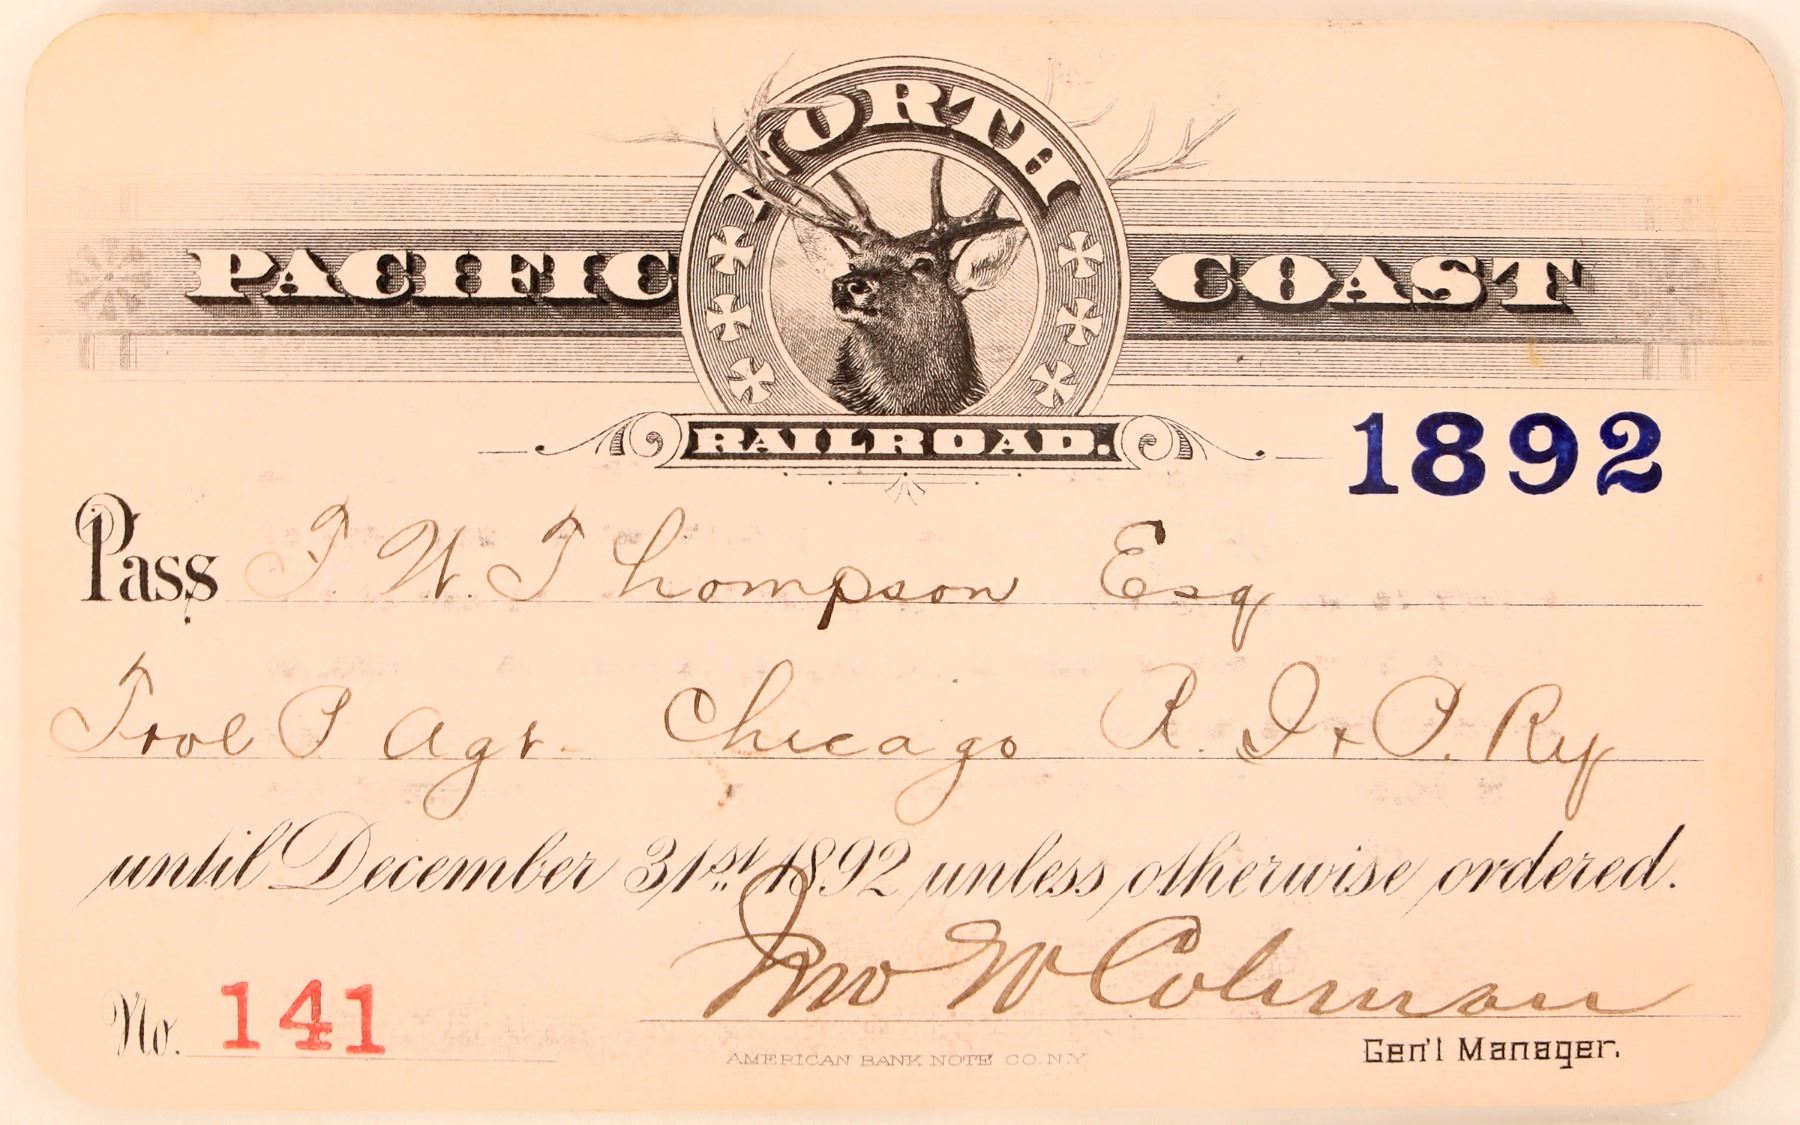 NORTH
PACIFIC COAST
RAILROAD.
1892
Pass T. W. Thompson Esq
Trvl P Agt - Chicago R. I. & P. Ry
until December 31st 1892 unless otherwise ordered.
Jno W Coleman
No. 141
Gen'l Manager.
AMERICAN BANK NOTE CO. N.Y.